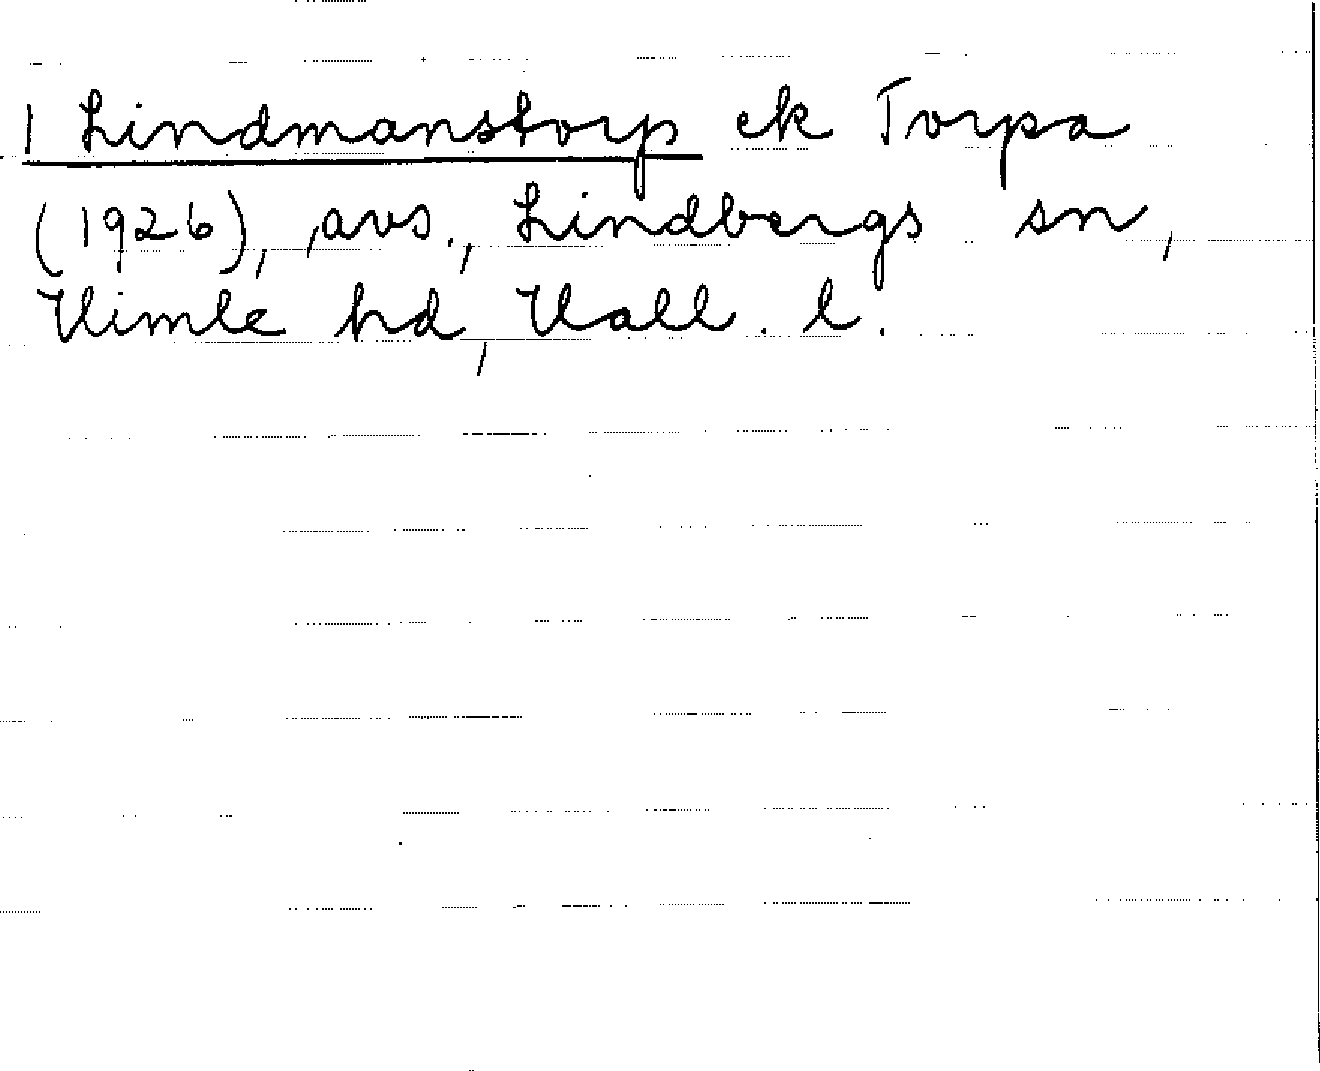 1 Lindmanstorp ek Torpa
(1926), ,avs., Lindbergs sn,
Himle hd, Hall. l.